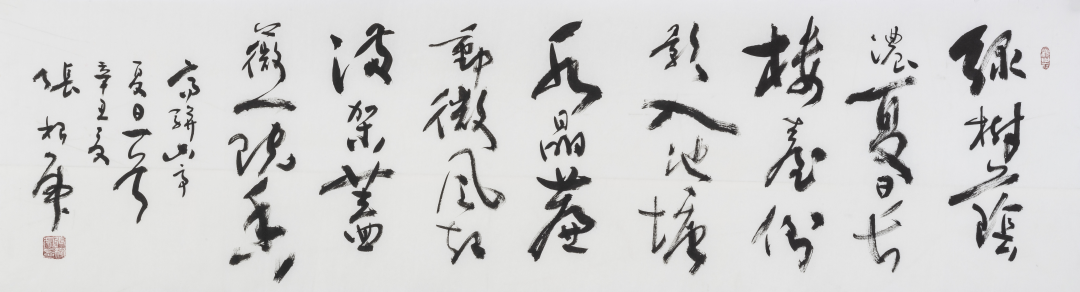 綠樹蔭
濃夏日長
樓臺倒
影入池塘
水晶簾
動微風起
滿架薔
薇一院香
高駢山亭
夏日一首
辛丑夏
張松